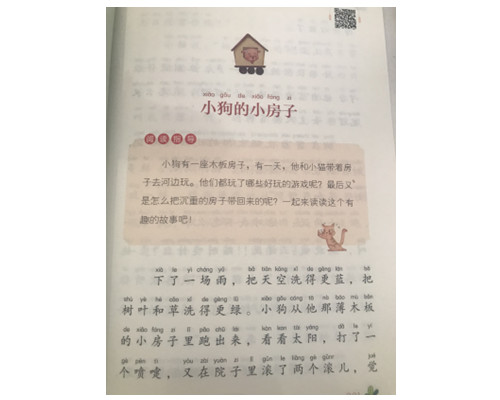 xiǎo gǒu de xiǎo fáng zi
小狗的小房子
阅读指导
小狗有一座木板房子，有一天，他和小猫带着房
子去河边玩。他们都玩了哪些好玩的游戏呢？最后又
是怎么把沉重的房子带回来的呢？一起来读读这个有
趣的故事吧！
xià le yì cháng yǔ bǎ tiān kōng xǐ de gèng lán bǎ
下了一场雨，把天空洗得更蓝，把
shù yè hé cǎo xǐ de gèng lǜ xiǎo gǒu cóng tā nà báo mù bǎn
树叶和草洗得更绿。小狗从他那薄木板
de xiǎo fáng zi lǐ pǎo chū lái kàn kan tài yáng dǎ le yí
的小房子里跑出来，看看太阳，打了一
gè pēn tì yòu zài yuàn zi lǐ gǔn le liǎng gè gǔnr jué
个喷嚏，又在院子里滚了两个滚儿，觉